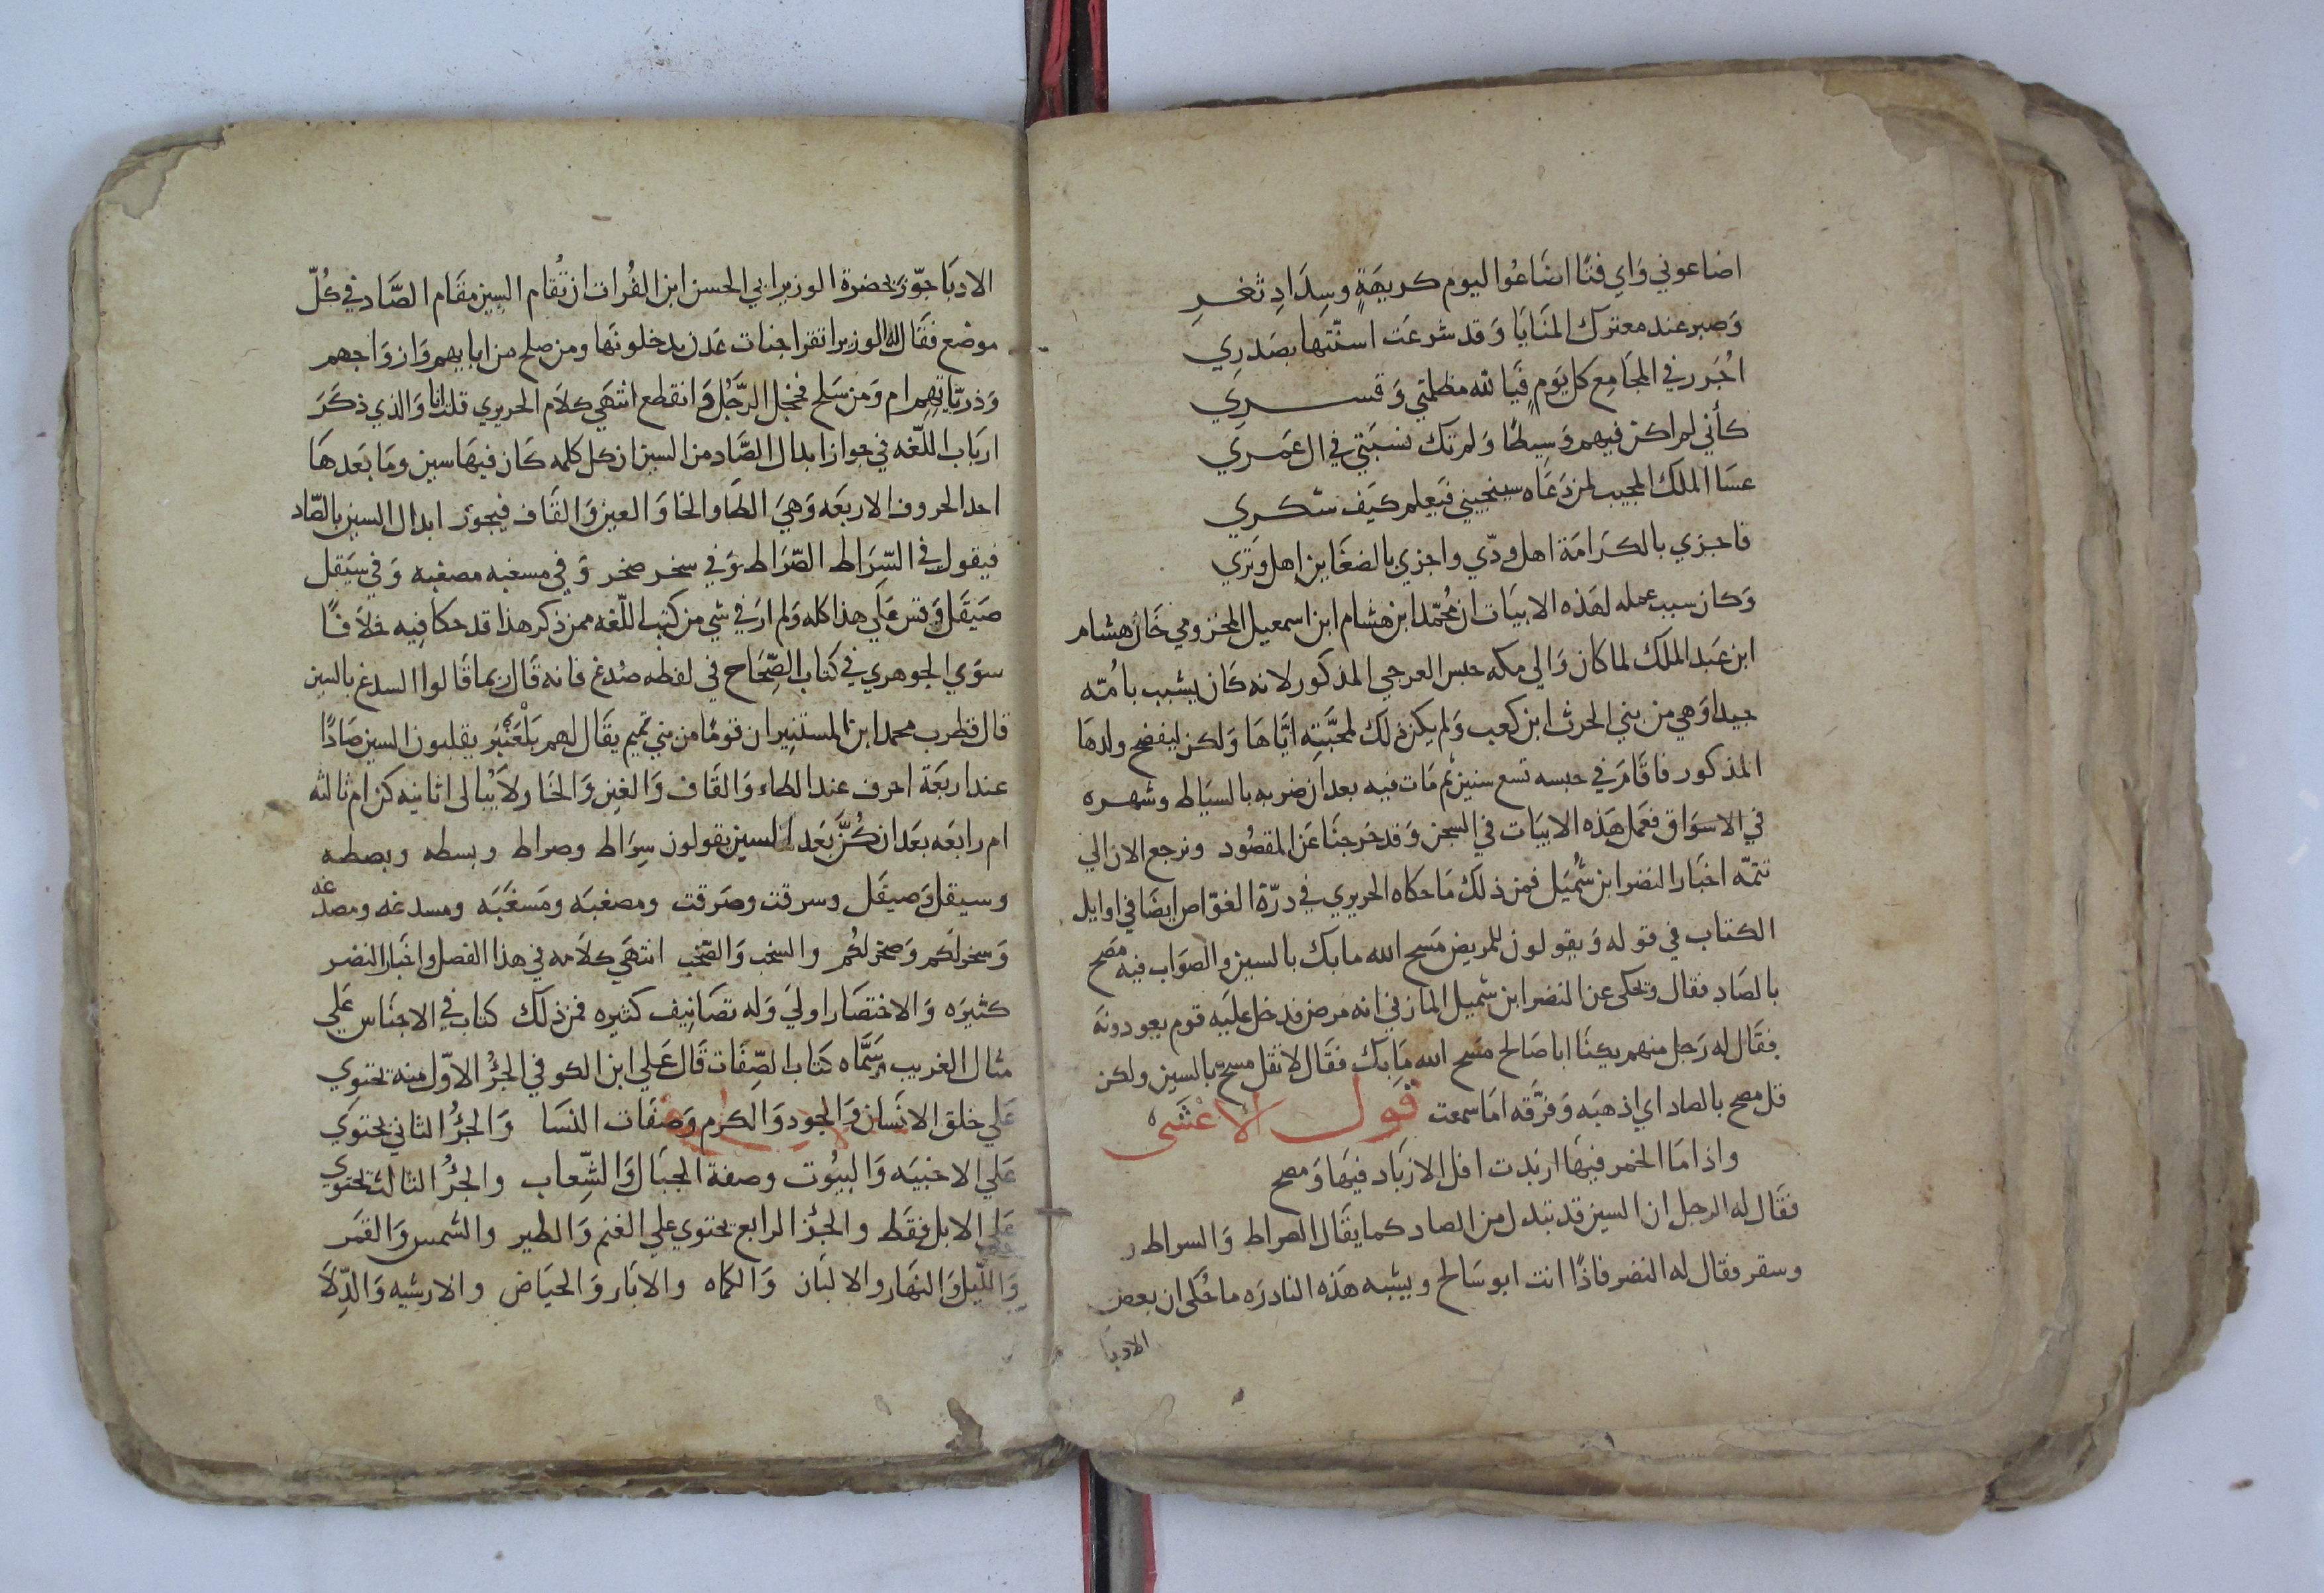 اضاعوني وَاي فتًا اضَاعُوا ليوم كريهَةٍ وسِدَادِ ثغرِ
وَصبر عند معترك المنَايَا وَقد شرعَت اسنّتها بصَدرِي
اُجَرر في المجَامِع كل يَومٍ فيَا لله مظلمتي وَقسري
كأني لم اكن فيهم وَسِيطًا وَلم تك نسبَتي في ال عَمري
عسَا الملك المجيب لمن دَعَاه سينجيني فيَعلم كيَف شكري
فاجزي بالكرَامَة اهل ودّي واجزي بالضغَاين اهل وَتري
وَكان سبب عمله لهَذه الابيَات ان مُحمّد ابن هشام ابن اسمعيل المخزومي خَال هشام
ابن عَبد الملك لما كان وَالي مكه حبس العرجي المذكور لانه كَان يشبب بامّه
جيدا وَهي من بني الحرث ابن كعب وَلم يكن ذلك لمحبَّتِه ايَّاهَا وَلكن ليفضح ولدهَا
المذكور فاقَامَ في حبسه تسع سنين ثم مَات فيه بعد ان ضربه بالسيَاط وشهره
في الاسوَاق فعَمل هَذه الابيَات في السجن وَقد خرجنَا عَن المقصُود ونرجع الان الي
تتمّه اخبَار النضر ابن شُميَل فمن ذلك مَا حكاه الحريري في درّة الغوّاص ايضًا في اوايل
الكتاب في قوله وَيقولون للمريض مَسح الله ما بك بالسين والصوَاب فيه مصَح
بالصَاد فقال وَيحكى عن النضر ابن شميل المازني انه مرض فدخل عليَه قوم يعودونه
فقَال له رَجل منهم يكنَا ابا صَالح مسَح الله مَا بك فقَال لا تقل مسح بالسين ولكن
قل مصح بالصاد اي اذهبَه وَفرَّقه امَا سمعت قول الاعْشَى
واذا مَا الخمر فيهَا ازبَدت افل الازبَاد فيهَا وَمصح
فقَال له الرجل ان السين قد تبدل من الصاد كما يقَال الصراط وَالسراط
وسقر فقال له النضر فاذًا انت ابو سَالح ويشبه هَذه النادرَه ما حُكى ان بعض
الادبا
الادبَا جوّزَ بحضرة الوزير ابي الحسن ابن الفُرات ان تُقام السِين مقَام الصَّاد في كُلّ
موضع فقَال له الوزير اتقرا جنات عَدن يدخلونَها ومن صلح من ابايهم وَازوَاجهم
وَذريّاتِهِم ام وَمن سَلح فخجل الرَّجُل وَانقطع انتهَي كلَام الحريري قلت انا وَالذي ذكرَ
اربَاب اللّغه في جواز ابدال الصَّاد من السين ان كل كلمه كَان فيهَا سين ومَا بَعدهَا
احد الحروف الاربعَه وَهيَ الطَا والخَا وَالغين وَالقَاف فيجوز ابدال السين بالصّاد
فيقول في السِّرَاط الصّرَاط وَفي سخر صخر وَفي مسغبه مصغبه وَفي سَيَقل
صَيَقل وَقس عَلي هذا كله وَلم ارَ في شي من كتب اللّغه ممن ذكر هذا قد حكا فيِه خلَافًا
سوَي الجوهري في كتاب الصِّحَاح في لفظه صُدغ فانه قَال ربما قَالوا السدغ بالسين
قال قطرب محمد ابن المستنير ان قومًا من بني تميم يقَال لهم بَلْعَنْبَر يقلبون السين صَادًا
عند اربعَة احرف عند الطاء وَالقَاف وَالغين وَالخَار لَا يُبالى اثانيه كن ام ثالثه
ام رابعَه بعَد ان كُنَّ بَعد السين يقولون سِرَاط وصراط وبسطه وبصطه
وسيقل وَصيقَل وسرقت وصَرقت ومصغبَه وَمَسغَبَه ومسدغه ومصدغه
وَسخر لكم وَصخر لكُم والسخب وَالصّخب انتهَي كلَامه في هذا الفصل واخبار النضر
كثيرَه وَالاختصَار اوليَ وَله تصَانيِف كثيره فمن ذلك كتاب في الاجنَاس عَلي
مثال الغريب وَسَمَّاه كتاب الصِّفَات قَال عَلي ابن الكوفي الجُزُ الاوّل منه يحتوِي
عَلي خلق الانسَان وَالجود وَالكرم وَصفَات النسَا وَالجزُ الثاني يحتوَي
عَلي الاخبيَه وَالبيُوت وصفة الجبَال وَالشِّعاب والجزُ الثالث يحتوي
عَلي الابل فقَط والجزُ الرابع يحتوي علي الغنم وَالطير والشمس وَالقمَر
وَاللّيل وَالنهَار والالبَان وَالكماه والابَار وَالحيَاض والارشيه وَالدِّلَا